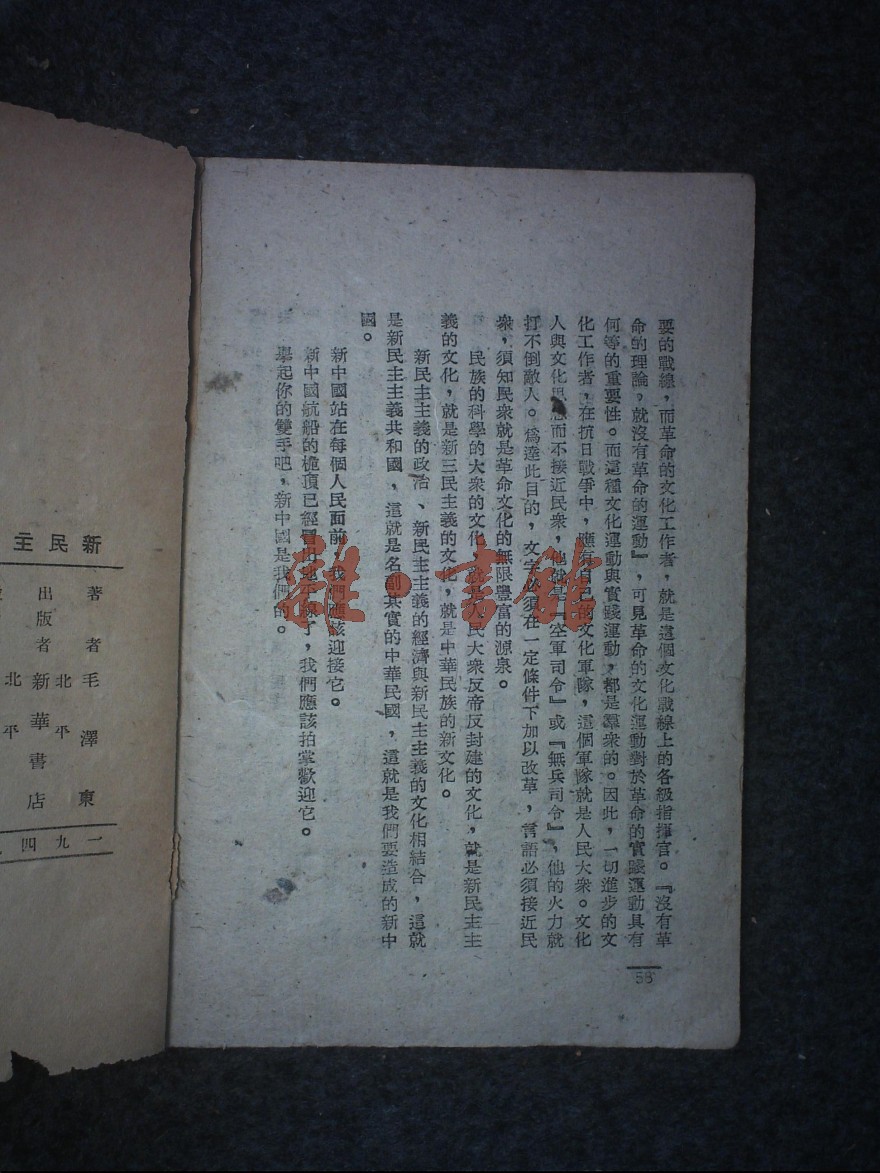 要的戰線，而革命的文化工作者，就是這個文化戰線上的各級指揮官。『沒有革
命的理論，就沒有革命的運動』，可見革命的文化運動對於革命的實踐運動具有
何等的重要性。而這種文化運動與實踐運動，都是羣衆的。因此，一切進步的文
化工作者，在抗日戰爭中，應有自己的文化軍隊，這個軍隊就是人民大衆。文化
人與文化思想而不接近民衆，他就是『空軍司令』或『無兵司令』，他的火力就
打不倒敵人。爲達此目的，文字必須在一定條件下加以改革，言語必須接近民
衆，須知民衆就是革命文化的無限豐富的源泉。
民族的科學的大衆的文化，就是人民大衆反帝反封建的文化，就是新民主主
義的文化，就是新三民主義的文化，就是中華民族的新文化。
新民主主義的政治、新民主主義的經濟與新民主主義的文化相結合，這就
是新民主主義共和國，這就是名副其實的中華民國，這就是我們要造成的新中
國。
新中國站在每個人民面前，我們應該迎接它。
新中國航船的桅頂已經冒出地平線了，我們應該拍掌歡迎它。
舉起你的雙手吧，新中國是我們的。
58
新民主
著者 毛澤東
出版者 北平新華書店
北平
一九四
雜·書館